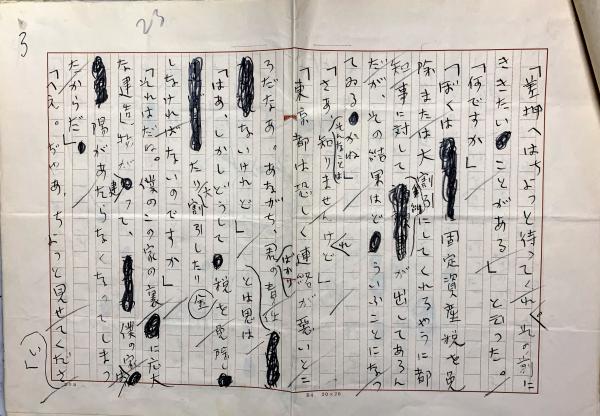 23
3
「差押へはちよつと待つてくれ。その前に
ききたいことがある」と云つた。
「何ですか」
「ぼくは固定資産税を免
除または大割引にしてくれるやうに都
知事に対してが出してあるん
だが、その結果はどういふことになつ
てゐるかね」
「さあ、そんなことは知りませんけれど」
「東京都は恐しく連絡が悪いとこ
ろだなあ。あながち、君の責任ばかりとは思は
ないけれど」
「はあ、しかしどうして税を免除し
たり割引したり
しなければならないのですか」
「それはだね。僕のこの家の裏に広大
な建造物が建つて、僕の家は
陽があたらなくなつてしまつ
たからだ」
「へえ。ぢやあ、ちよつと見せてくださ
い」
20×20